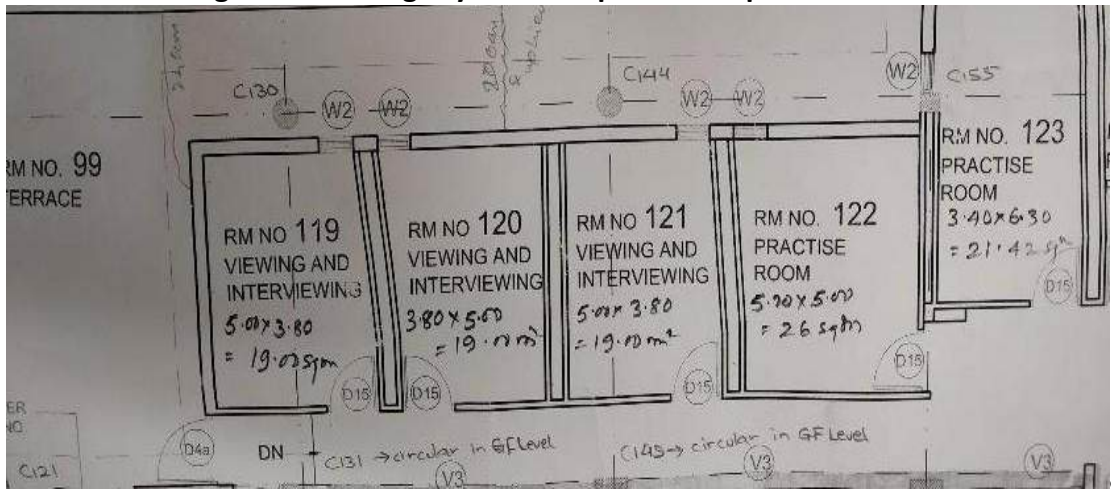 C130
C144
C155
W2
W2
W2
W2
W2
RM NO. 99
TERRACE
RM NO 119
VIEWING AND
INTERVIEWING
5.00 x 3.80
= 19.00 sqm
RM NO 120
VIEWING AND
INTERVIEWING
3.80 x 5.00
= 19.00 m²
RM NO 121
VIEWING AND
INTERVIEWING
5.00 x 3.80
= 19.00 m²
RM NO. 122
PRACTISE
ROOM
5.20 x 5.00
= 26 sqm
RM NO. 123
PRACTISE
ROOM
3.40 x 6.30
= 21.42 sqm
D15
D15
D15
D15
D15
ER
NO
C121
D4a
DN
C131 → circular in GF Level
C145 → circular in GF Level
V3
V3
V3